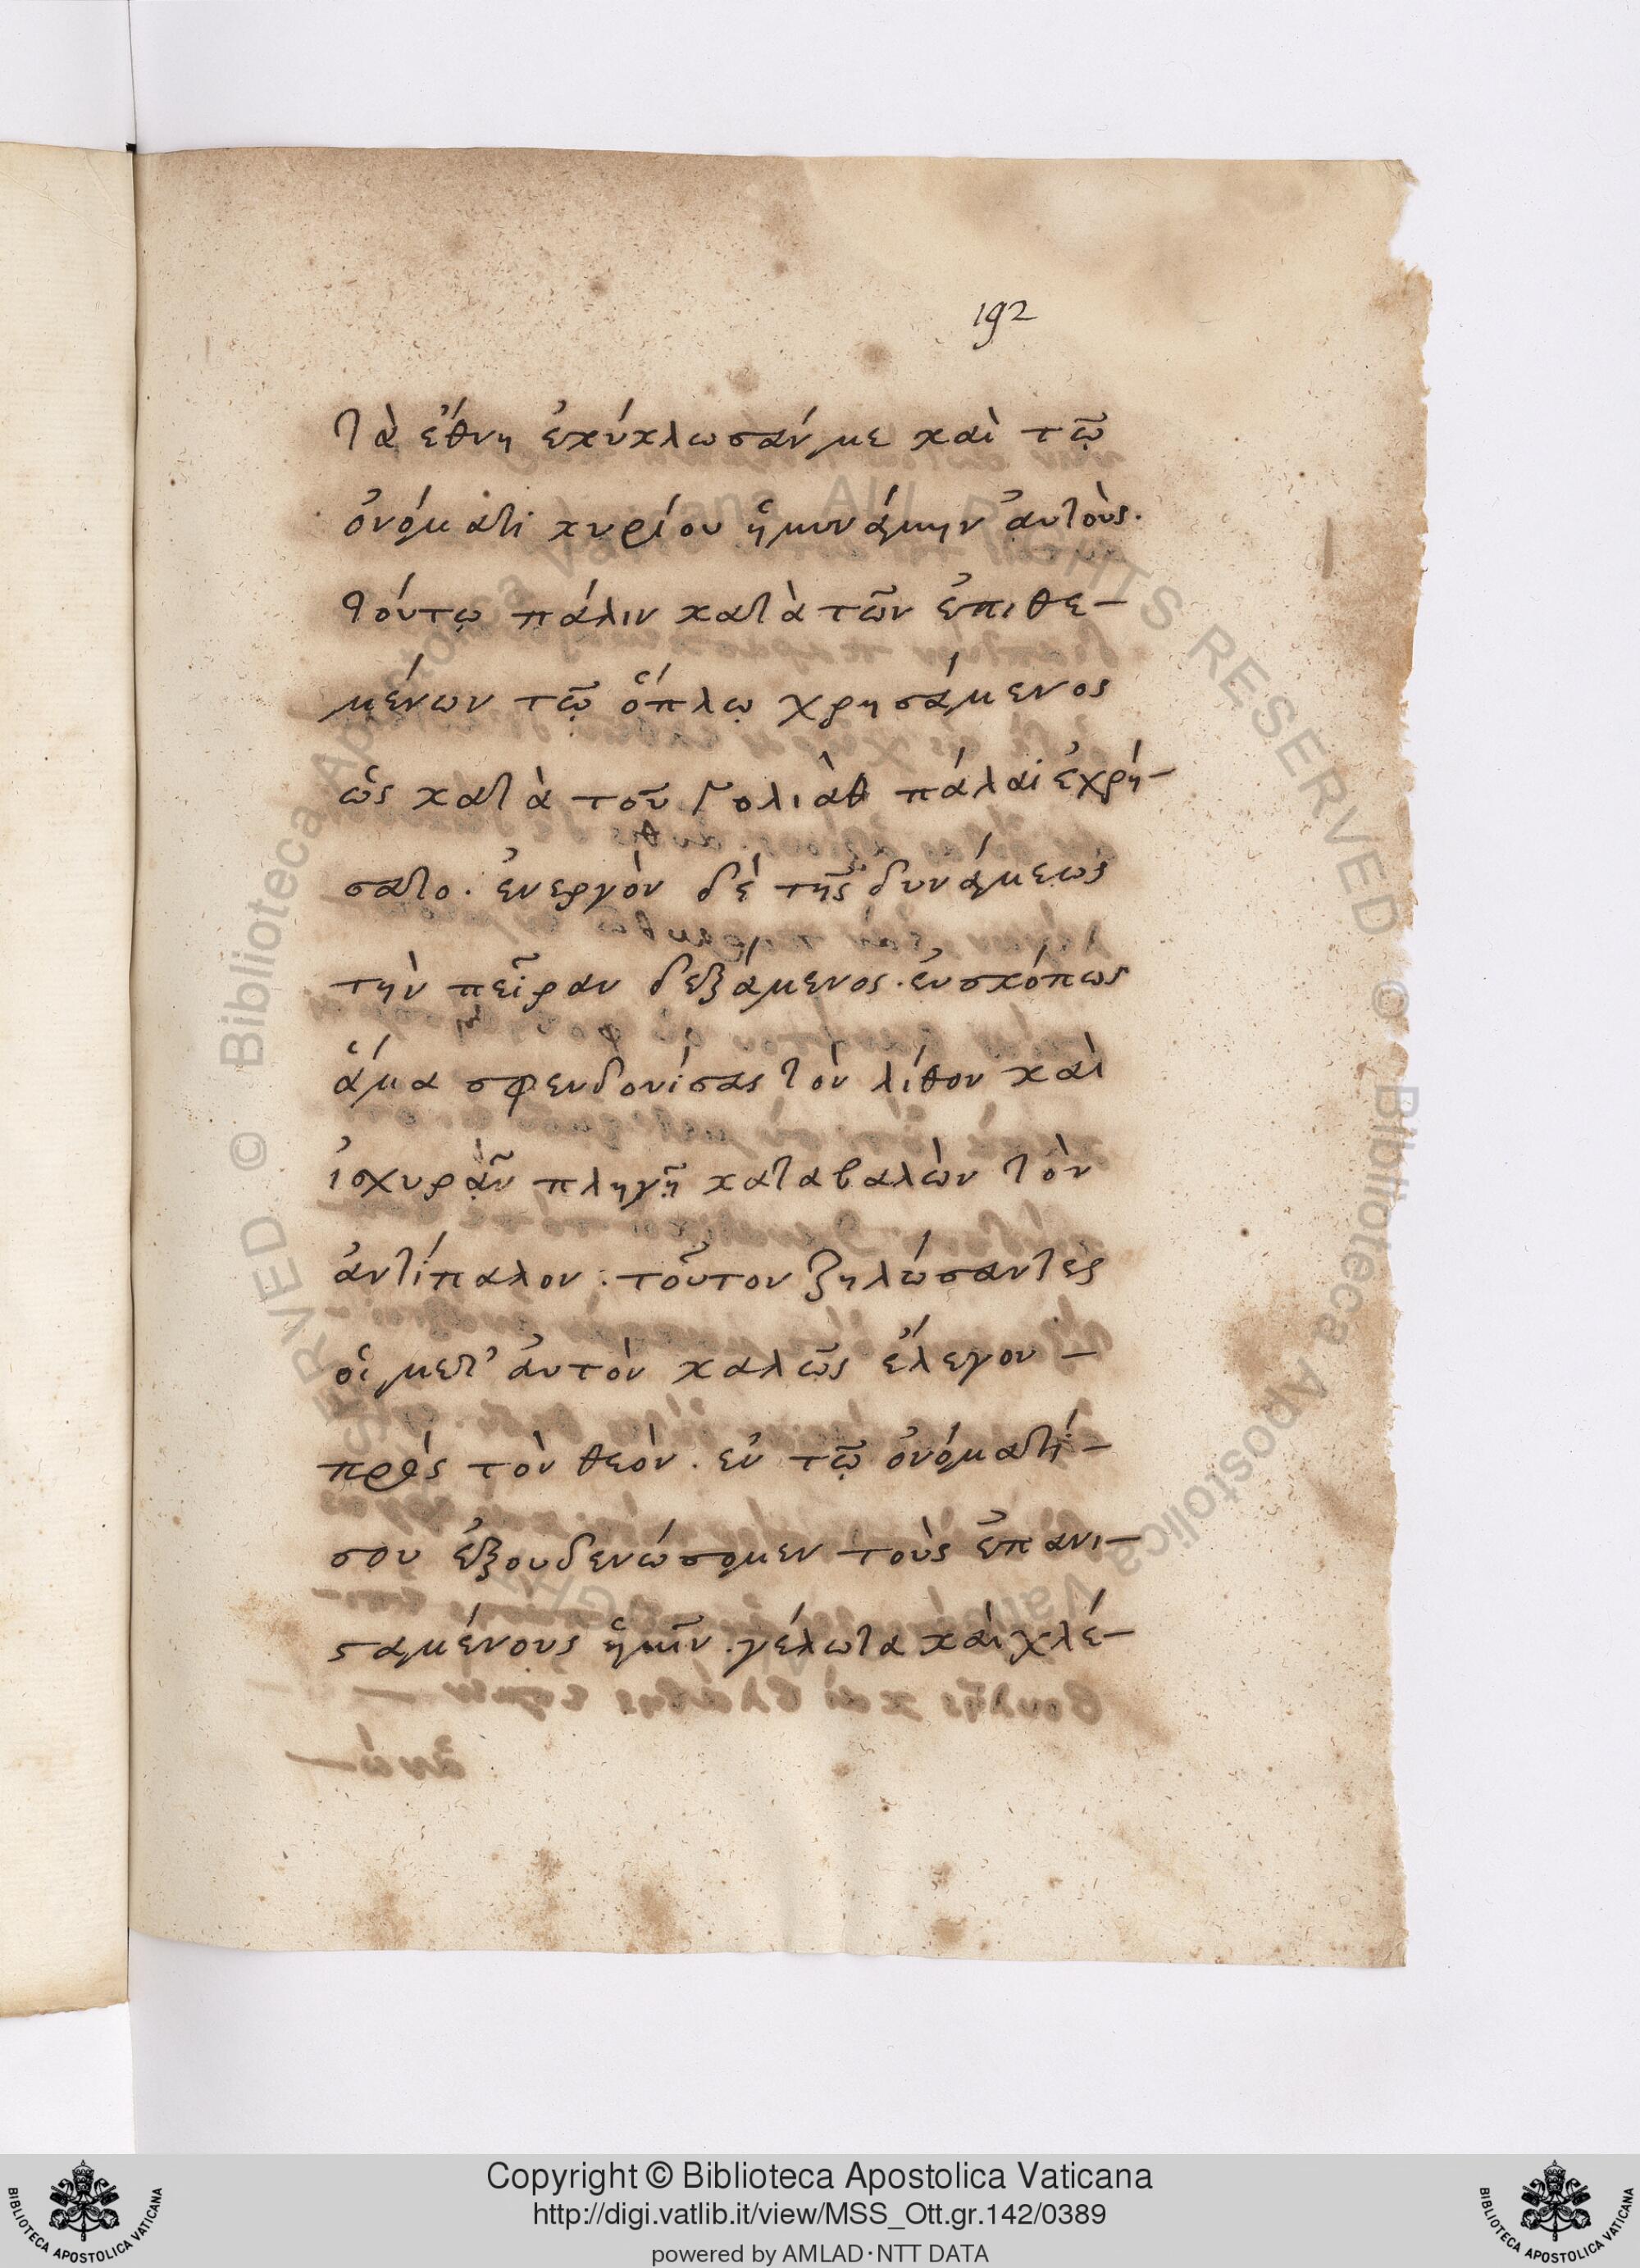 192
τὰ ἔθνη ἐκύκλωσάν με καὶ τῶ
ὀνόματι κυρίου ἠμυνάμην ἀυτούς.
τούτω πάλιν κατὰ τῶν ἐπιθε-
μένων τῶ ὅπλω χρησάμενος
ὡς κατὰ τοῦ Γολιὰθ πάλαι ἐχρή-
σατο. ἐνεργὸν δὲ τῆς δυνάμεως
τὴν πεῖραν δεξάμενος. ἐυσκόπως
ἅμα σφενδονίσας τὸν λίθον καὶ
ἰσχυρᾶν πληγῆ καταβαλὼν τὸν
ἀντίπαλον. τοῦτον ζηλώσαντες
οἱ μετ' ἀυτὸν καλῶς ἔλεγον -
πρὸς τὸν θεόν. ἐν τῶ ὀνόματί -
σου ἐξουδενώσομεν τοὺς ἐπανι-
σαμένους ἡμῖν. γέλωτα καὶ χλέ-
© Biblioteca Apostolica Vaticana ALL RIGHTS RESERVED
Copyright © Biblioteca Apostolica Vaticana
http://digi.vatlib.it/view/MSS_Ott.gr.142/0389
powered by AMLAD·NTT DATA
BIBLIOTECA APOSTOLICA VATICANA
BIBLIOTECA APOSTOLICA VATICANA